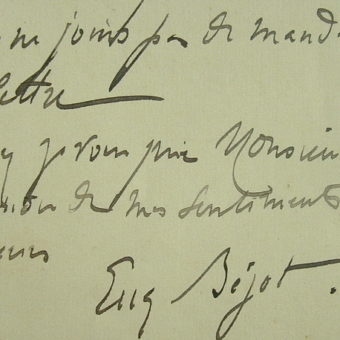 ne joins pas de mand
lettre
je vous prie Monsieu
de mes sentiments
eurs
Eug Béjot.